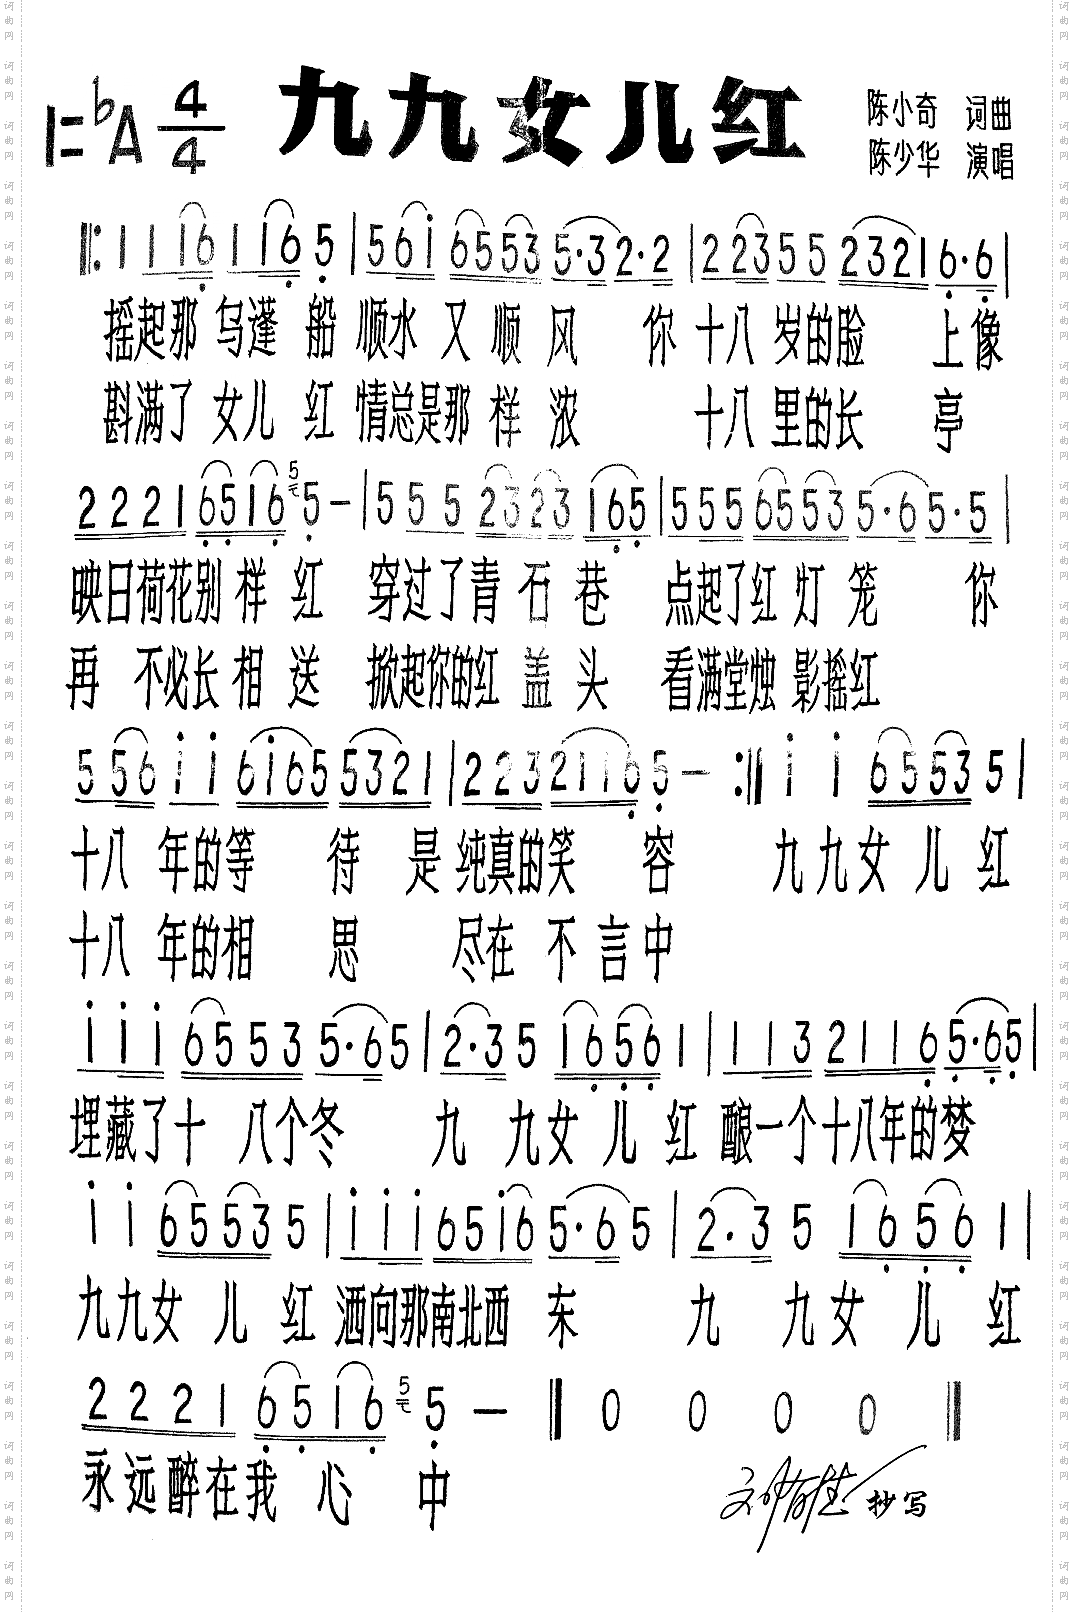 九九女儿红
1=♭A 4/4
陈小奇 词曲
陈少华 演唱
‖: 1 1 16 1 16 5 | 5 6 i 6553 5·3 2·2 | 2 23 5 5 2321 6·6 |
摇起那 乌蓬 船 顺水 又 顺 风 你 十八 岁的脸 上像
斟满了 女儿 红 情总是那 样 浓 十八 里的长 亭
2221 6516 5 5 – | 5 5 5 2323 165 | 5 55 6553 5·6 5·5 |
映日荷花别 样 红 穿过了青 石 巷 点起了红 灯 笼 你
再 不必长 相 送 掀起你的红 盖 头 看满堂烛 影摇红
5 56 i i 6i65 5321 | 2 23 2116 5 – :‖ i i 6553 5 |
十八 年的等 待 是 纯真的笑 容 九九女 儿 红
十八 年的相 思 尽在 不 言 中
i i i 6553 5·6 5 | 2·3 5 1656 1 | 1 1 3 2116 5·6 5 |
埋藏了十 八个冬 九 九女 儿 红 酿一个十八年的梦
i i 6553 5 | i i i 65i6 5·6 5 | 2·3 5 1656 1 |
九九女 儿 红 洒向那南北西 东 九 九女 儿 红
2221 6516 5 5 – ‖ 0 0 0 0 ‖
永远醉在我 心 中
抄写
词曲网